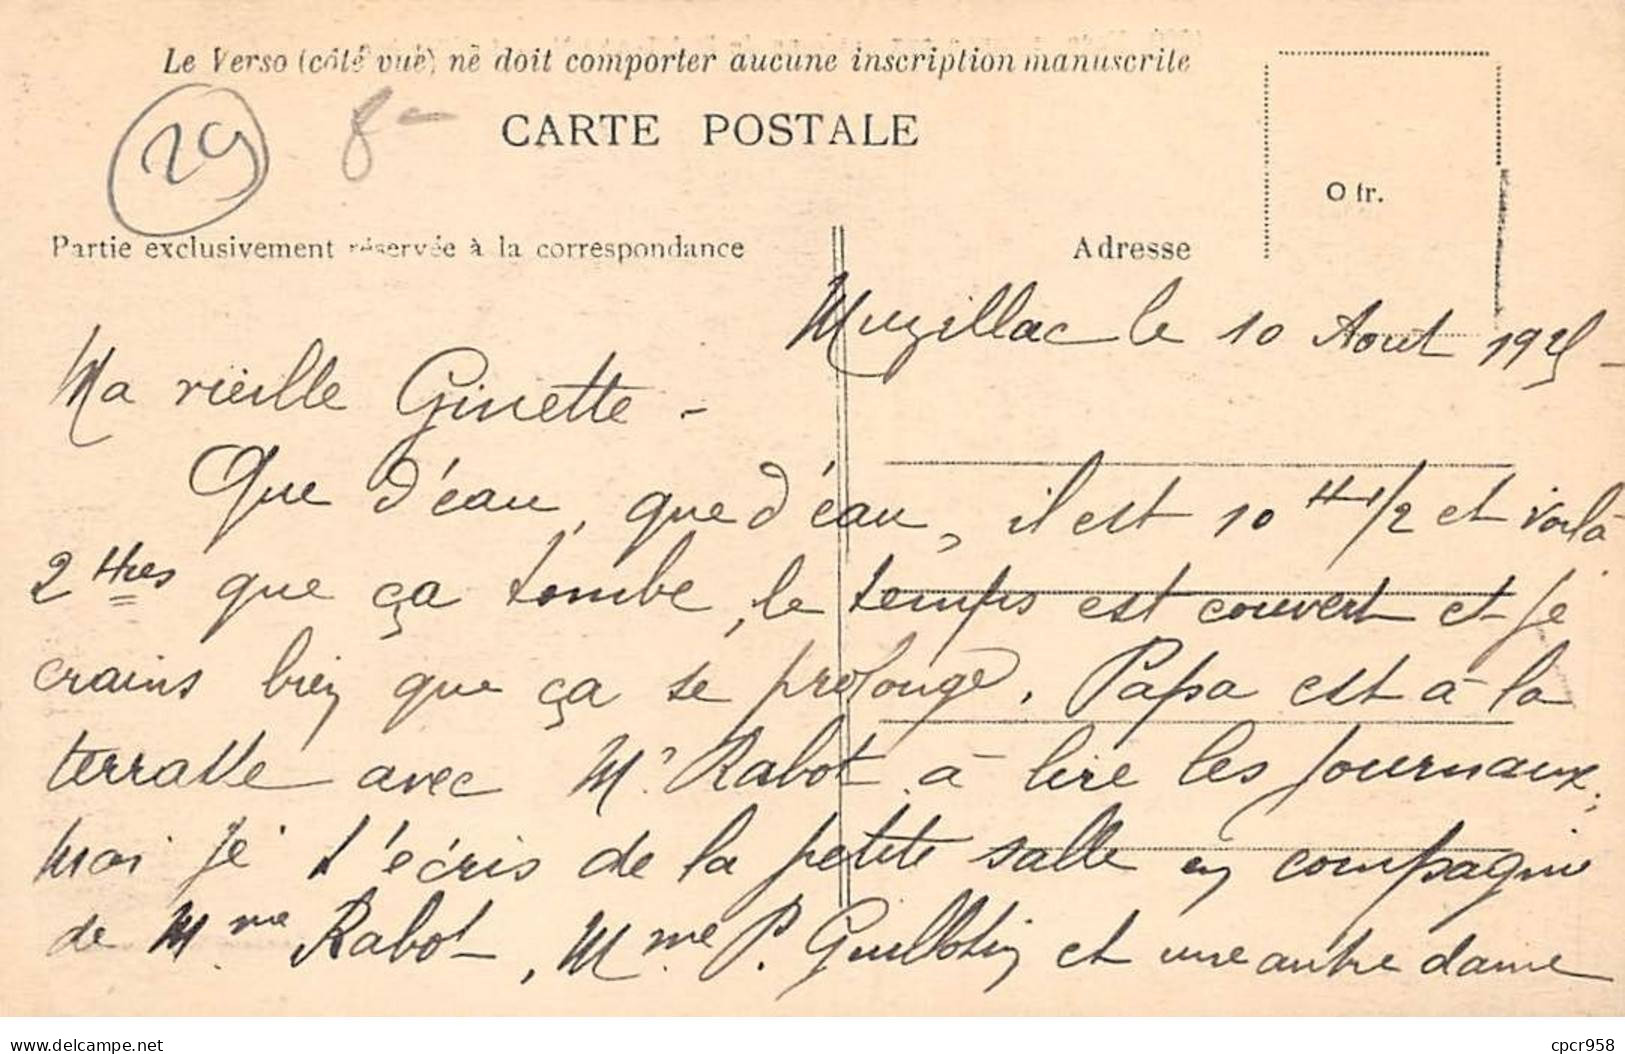 Le Verso (côté vue) ne doit comporter aucune inscription manuscrite
29
8-
CARTE POSTALE
0 fr.
Partie exclusivement réservée à la correspondance
Adresse
Muzillac le 10 Aout 1925 -
Ma vieille Ginette -
Que d'eau, que d'eau, il est 10 H 1/2 et voilà
2 Hres que ça tombe, le temps est couvert et je
crains bien que ça se prolonge. Papa est à la
terrasse avec Mr. Rabot à lire les journaux,
moi je t'écris de la petite salle en compagnie
de Mme Rabot, Mme P. Guillotin et une autre dame
www.delcampe.net
cpcr958